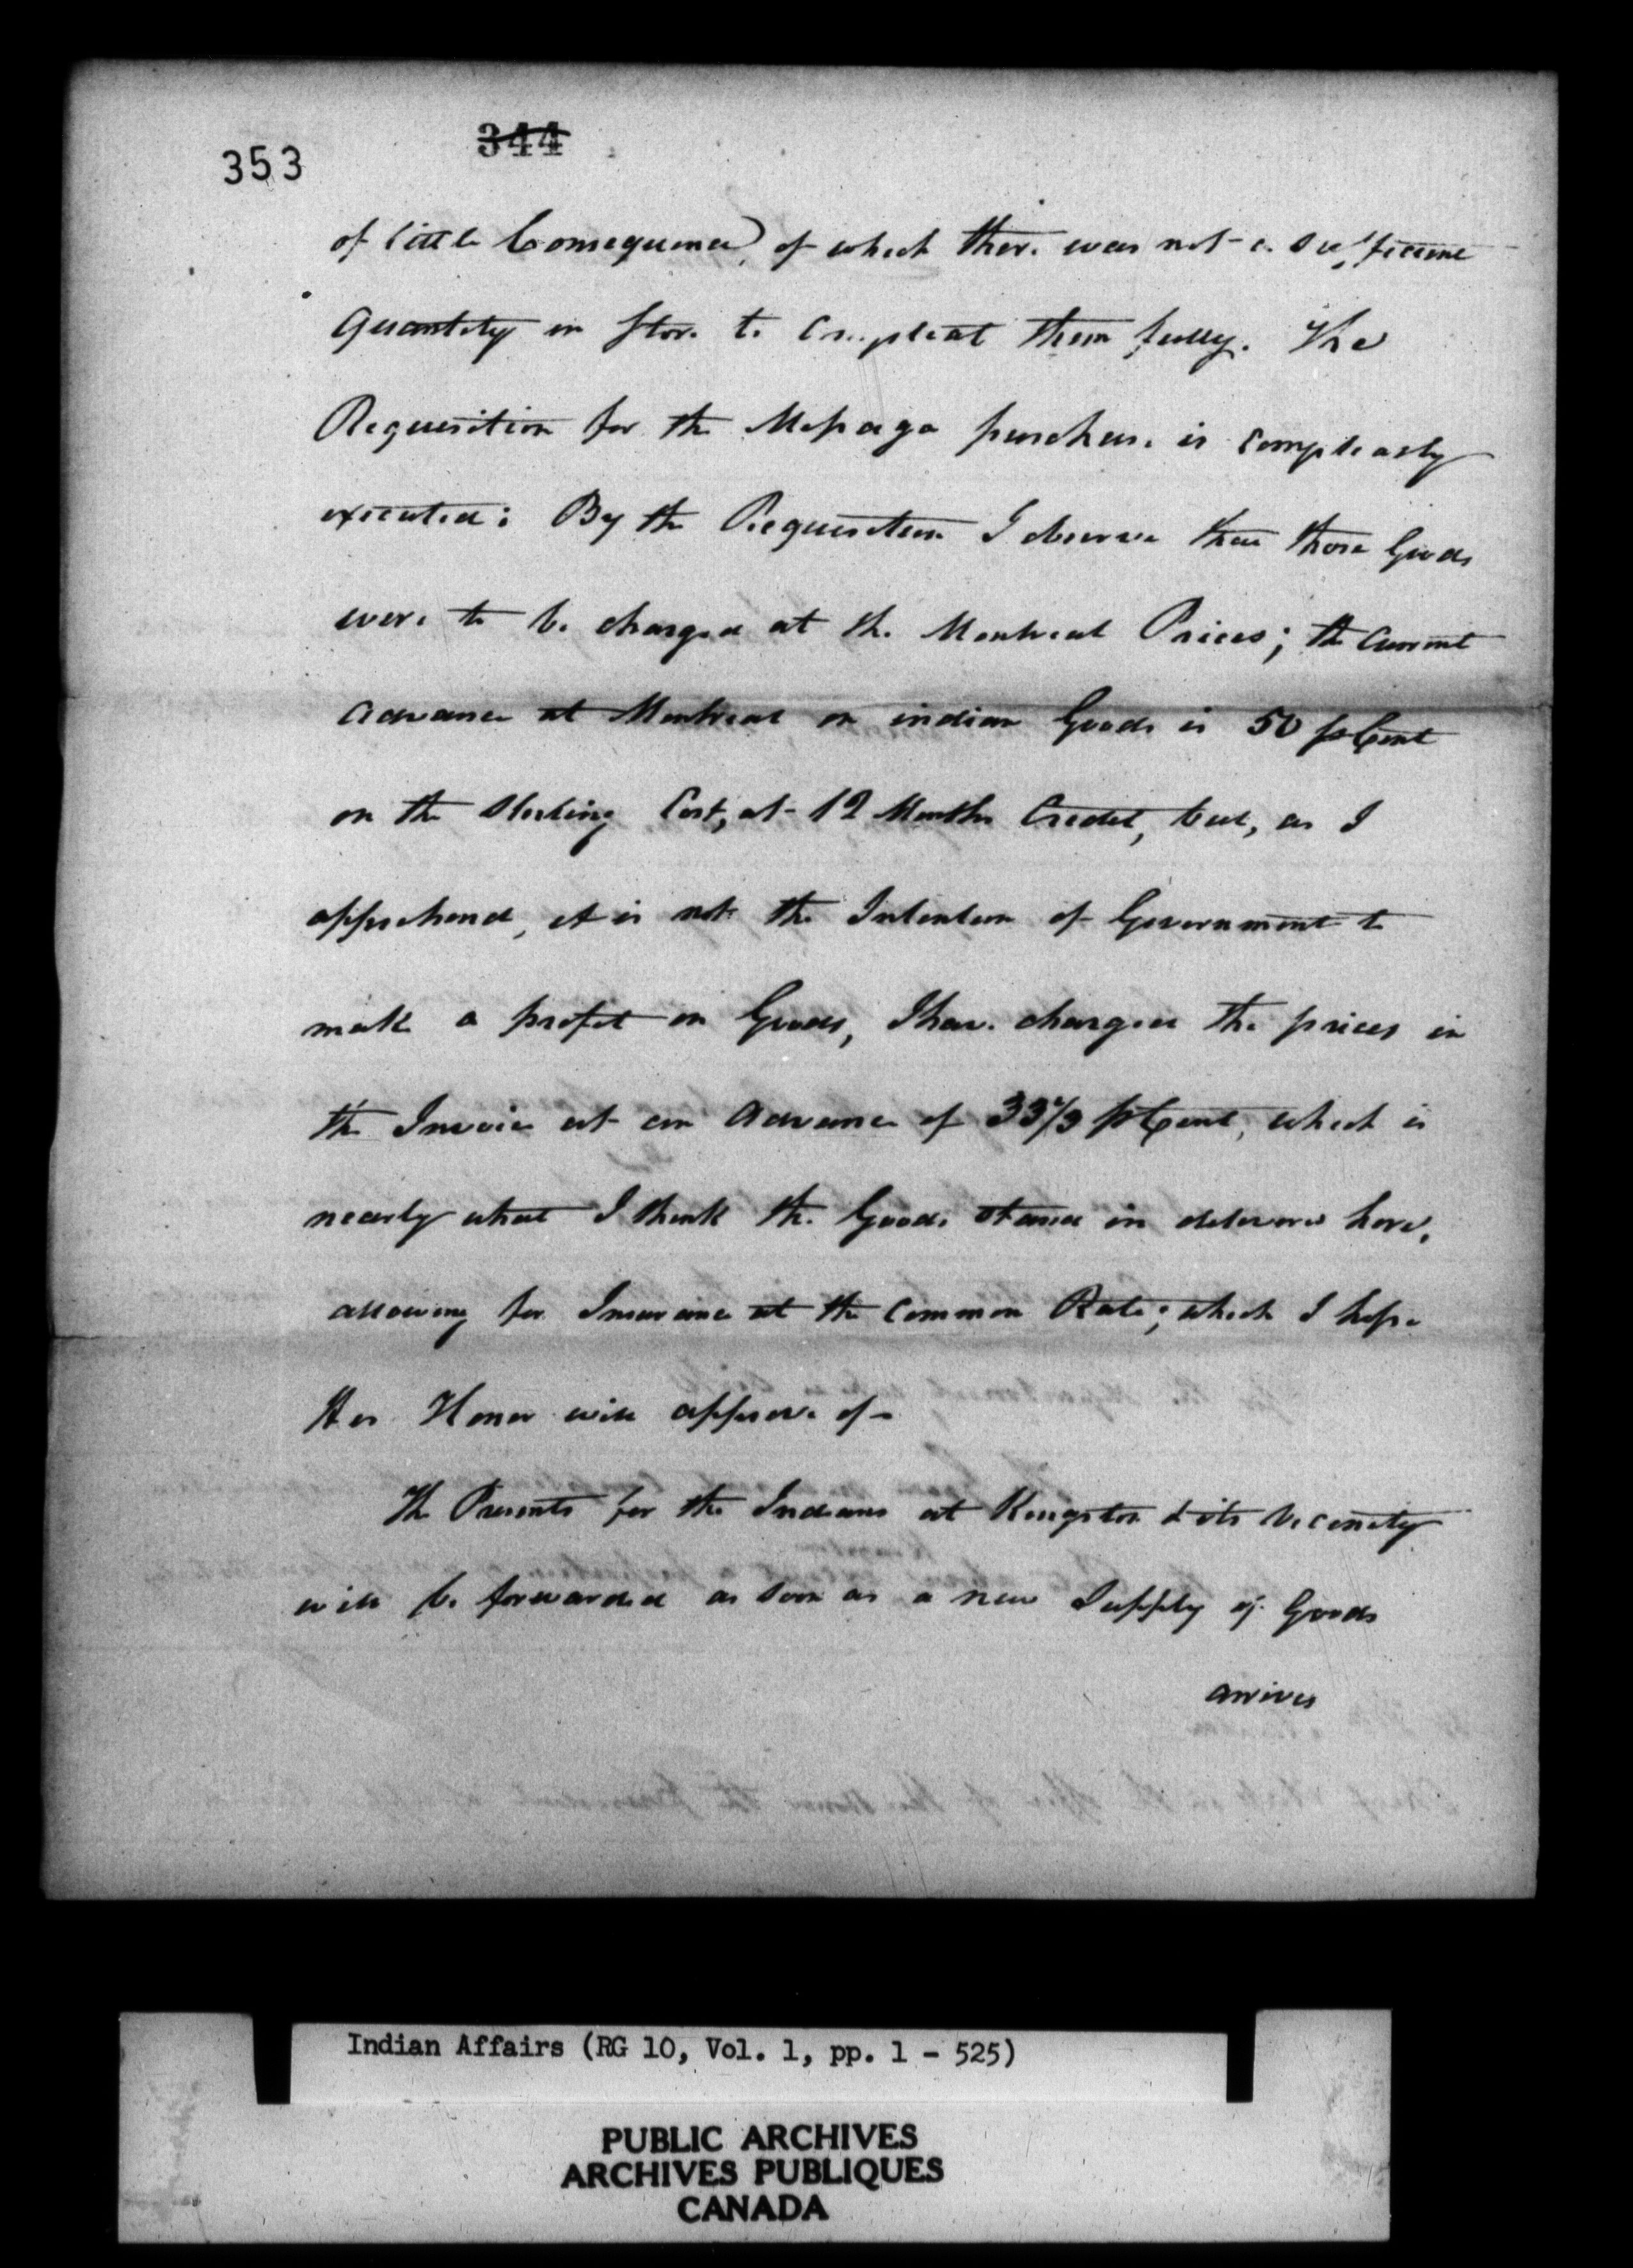 353
344
of little Consequence) of which there was not a sufficient
Quantity in Store to Compleat them fully. The
Requisition for the Messaga purchase is compleatly
executed: By the Requisition I observe that those Goods
were to be charged at the Montreal Prices; the Current
Advance at Montreal on indian Goods is 50 p Cent
on the Sterling Cost, at 12 Months Credit, but, as I
apprehend, it is not the Intention of Government to
make a profit on Goods, I have charged the prices in
the Invoice at an Advance of 33⅓ p Cent, which is
nearly what I think the Goods stand in delivered here,
allowing for Insurance at the Common Rate; which I hope
His Honor will approve of—
The Presents for the Indians at Kingston & its Vicinity
will be forwarded as soon as a new Supply of Goods
arrives
Indian Affairs (RG 10, Vol. 1, pp. 1 - 525)
PUBLIC ARCHIVES
ARCHIVES PUBLIQUES
CANADA